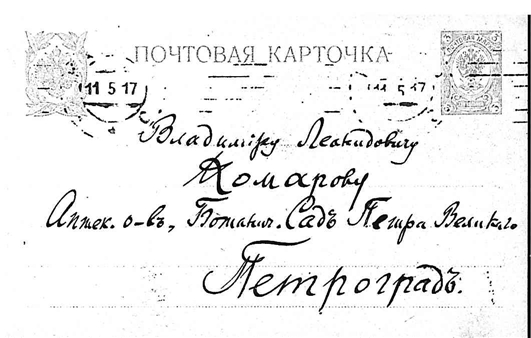 ПОЧТОВАЯ КАРТОЧКА
11 5 17
11 5 17
Владиміру Леонидовичу
Комарову
Аптек. о-въ, Ботанич. Садъ Петра Великаго
Петроградъ.